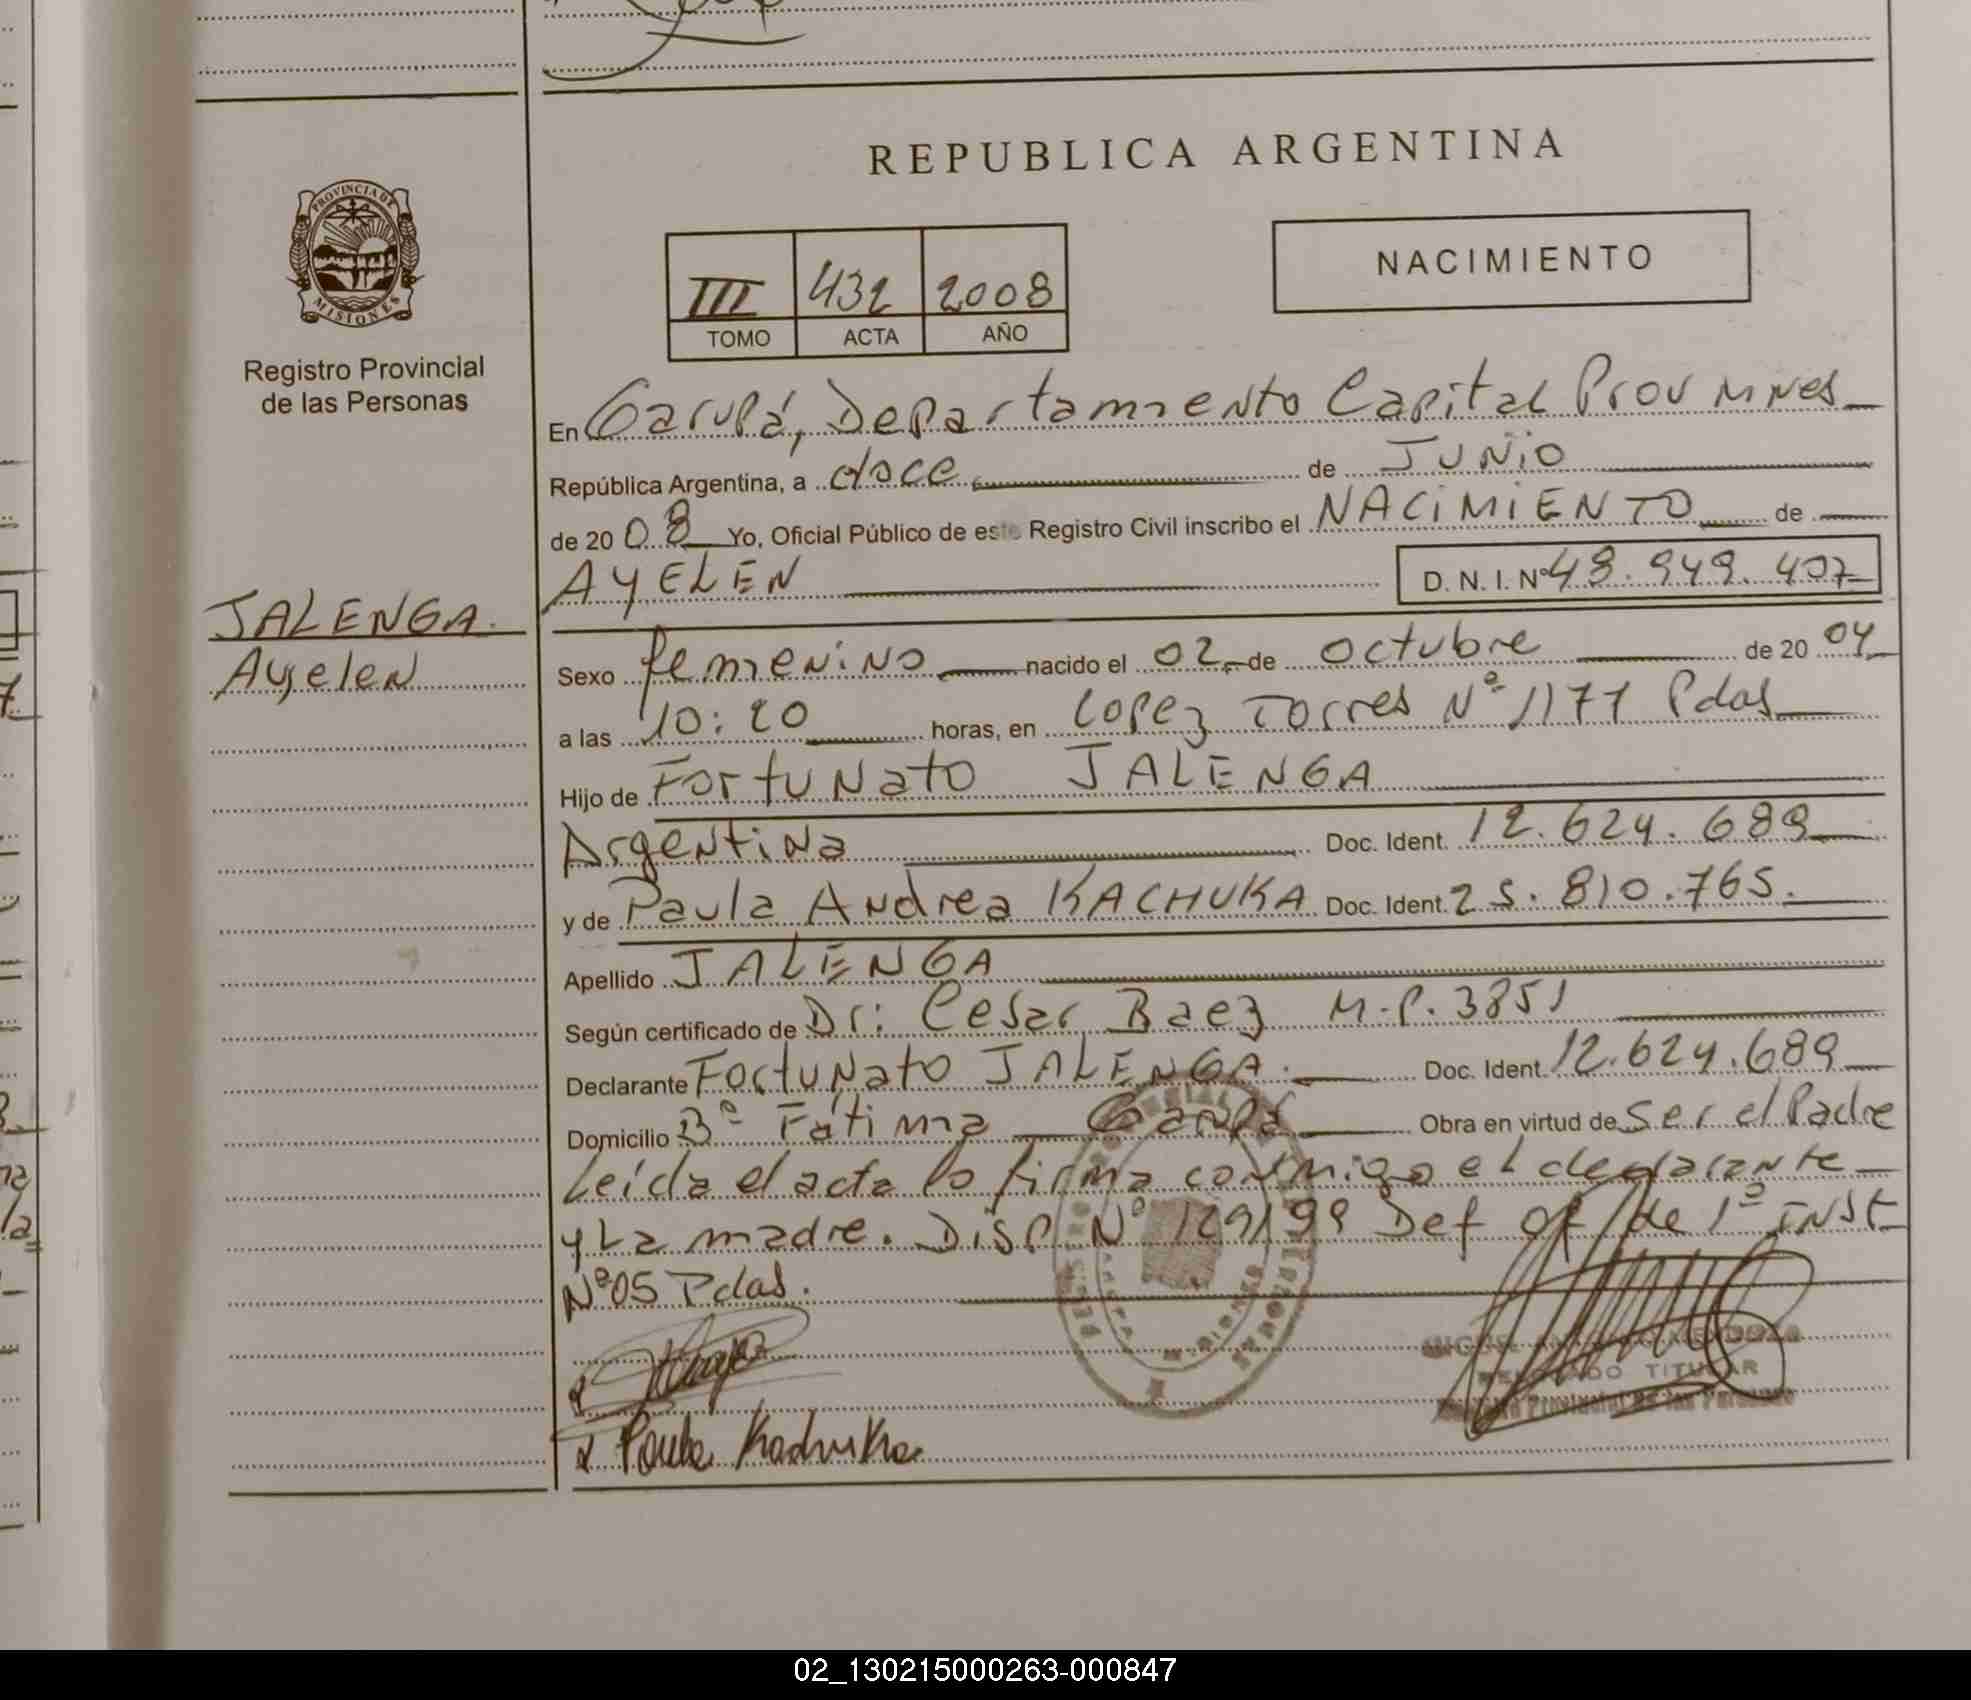 REPUBLICA ARGENTINA
PROVINCIA DE
MISIONES
Registro Provincial
de las Personas
NACIMIENTO
III 432 2008
TOMO ACTA AÑO
En Garupá, Departamento Capital Prov Mnes
República Argentina, a doce de JUNIO
de 20 08 Yo, Oficial Público de este Registro Civil inscribo el NACIMIENTO de
AYELEN D. N. I. Nº 48.949.407
JALENGA.
Ayelen
Sexo femenino nacido el 02 de octubre de 20 04
a las 10:20 horas, en Lopez Torres Nº 1177 Pdas
Hijo de Fortunato JALENGA
Argentina Doc. Ident. 12.624.689
y de Paula Andrea KACHUKA Doc. Ident. 25.810.765.
Apellido JALENGA
Según certificado de Dr: Cesar Baez M.P. 3851
Declarante Fortunato JALENGA. Doc. Ident. 12.624.689
Domicilio Bº Fátima Garupá Obra en virtud de Ser el Padre
Leída el acta lo firma conmigo el declarante
y La madre. Disp Nº 129/99 Def of de 1º INST
Nº 05 Pdas.
TITULAR
Provincial de las Personas
Paula Kachuka
02_130215000263-000847